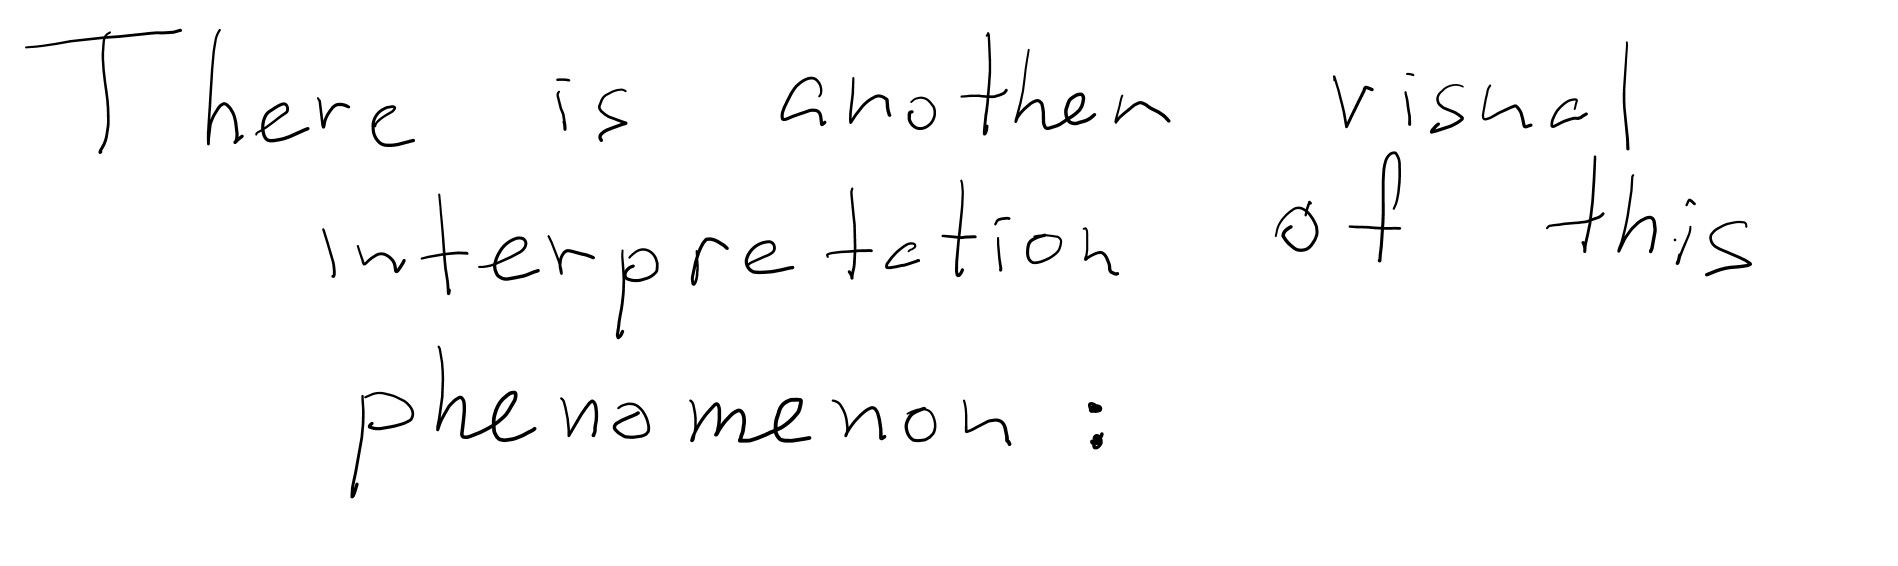 There is another visual
interpretation of this
phenomenon: